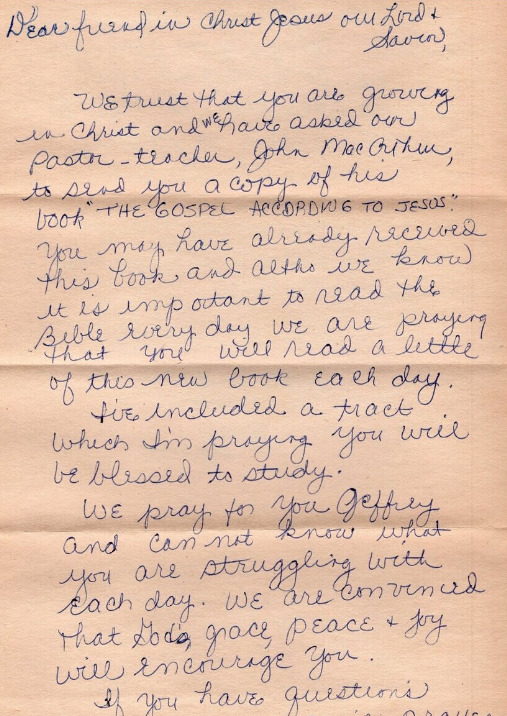 Dear friend in Christ Jesus our Lord &
Savior,
We trust that you are growing
in Christ and we have asked our
Pastor-teacher, John MacArthur,
to send you a copy of his
book "THE GOSPEL ACCORDING TO JESUS".
You may have already received
this book and altho we know
it is important to read the
Bible every day we are praying
that you will read a little
of this new book each day.
I've included a tract
which I'm praying you will
be blessed to study.
We pray for you Geffrey
and can not know what
you are struggling with
each day. We are convinced
that God's grace, peace & joy
will encourage you.
If you have questions